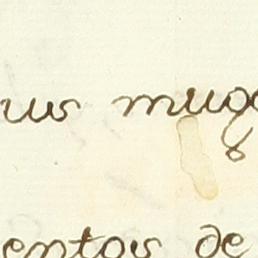 us muge
entos de